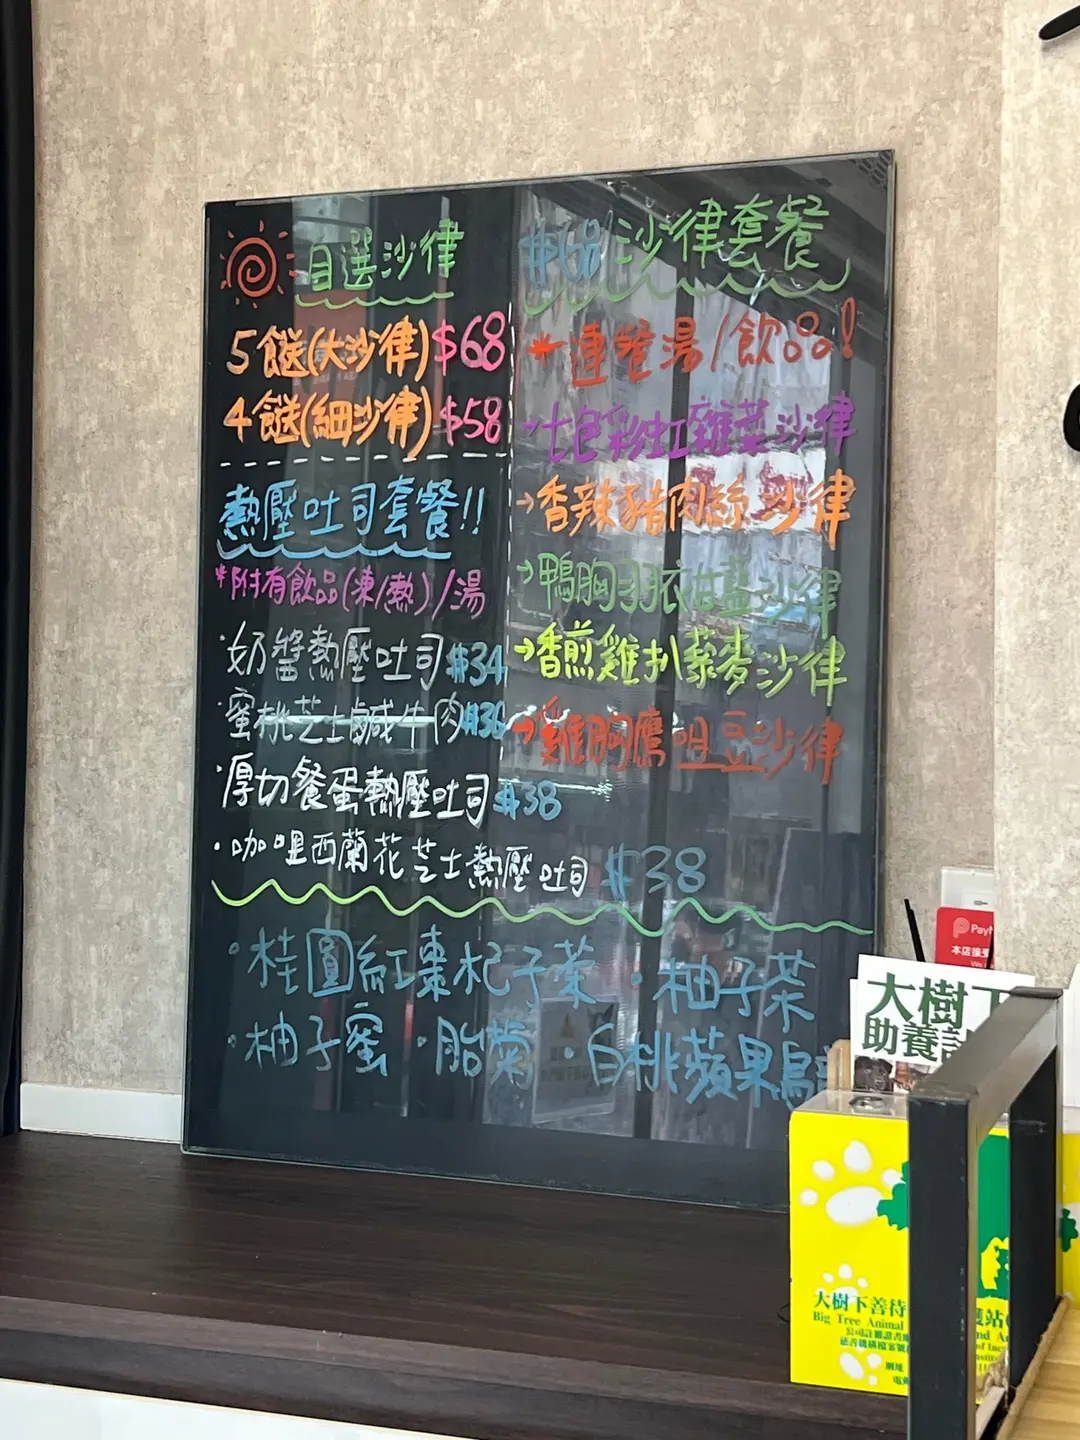 自選沙律
5餸(大沙律)$68
4餸(細沙律)$58
熱壓吐司套餐!!
*附有飲品(凍/熱)/湯
·奶醬熱壓吐司$34
·蜜桃芝士鹹牛肉$36
·厚切餐蛋熱壓吐司$38
·咖哩西蘭花芝士熱壓吐司 $38
$68沙律套餐
*連餐湯/飲品!
→七色彩虹雜菜沙律
→香辣豬肉絲沙律
→鴨胸羽衣甘藍沙律
→香煎雞扒藜麥沙律
→雞胸鷹咀豆沙律
·桂圓紅棗杞子茶 ·柚子茶
·柚子蜜 ·胎菊 ·白桃蘋果烏
本店接受
大樹下
助養
大樹下善待
Big Tree Animal
護站